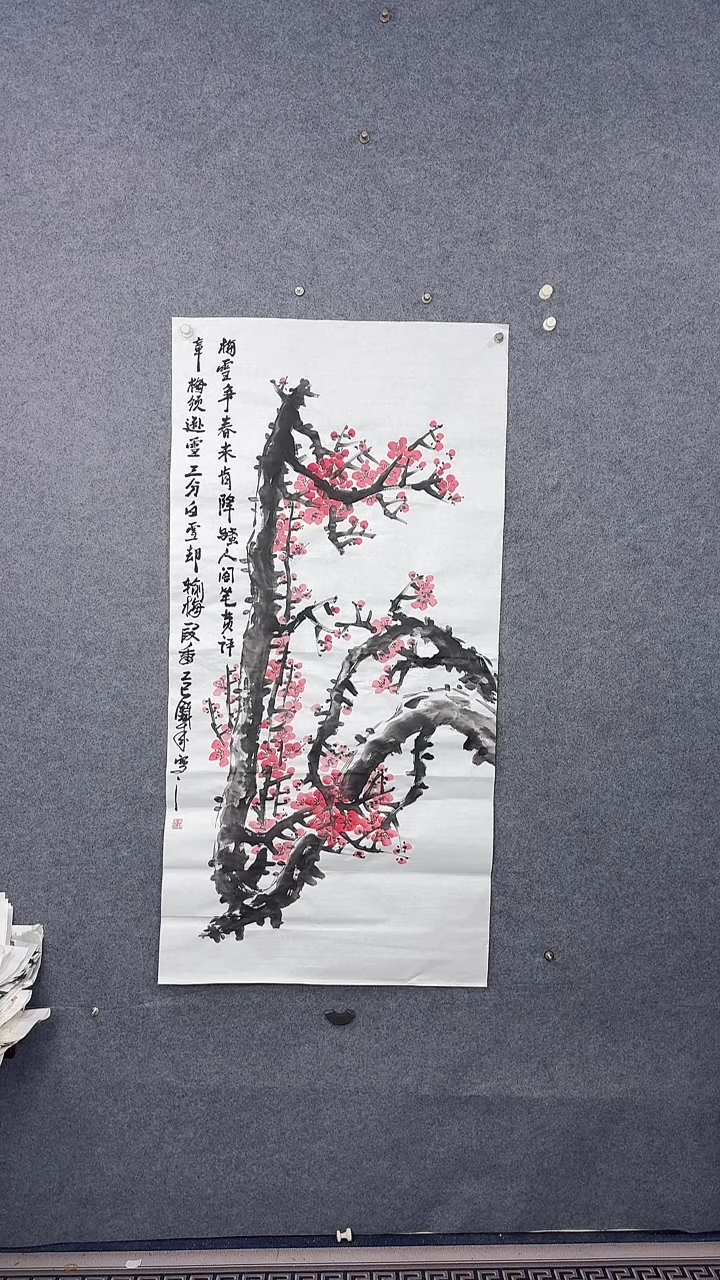 梅雪争春未肯降骚人阁笔费评
章梅须逊雪三分白雪却输梅段香乙巳